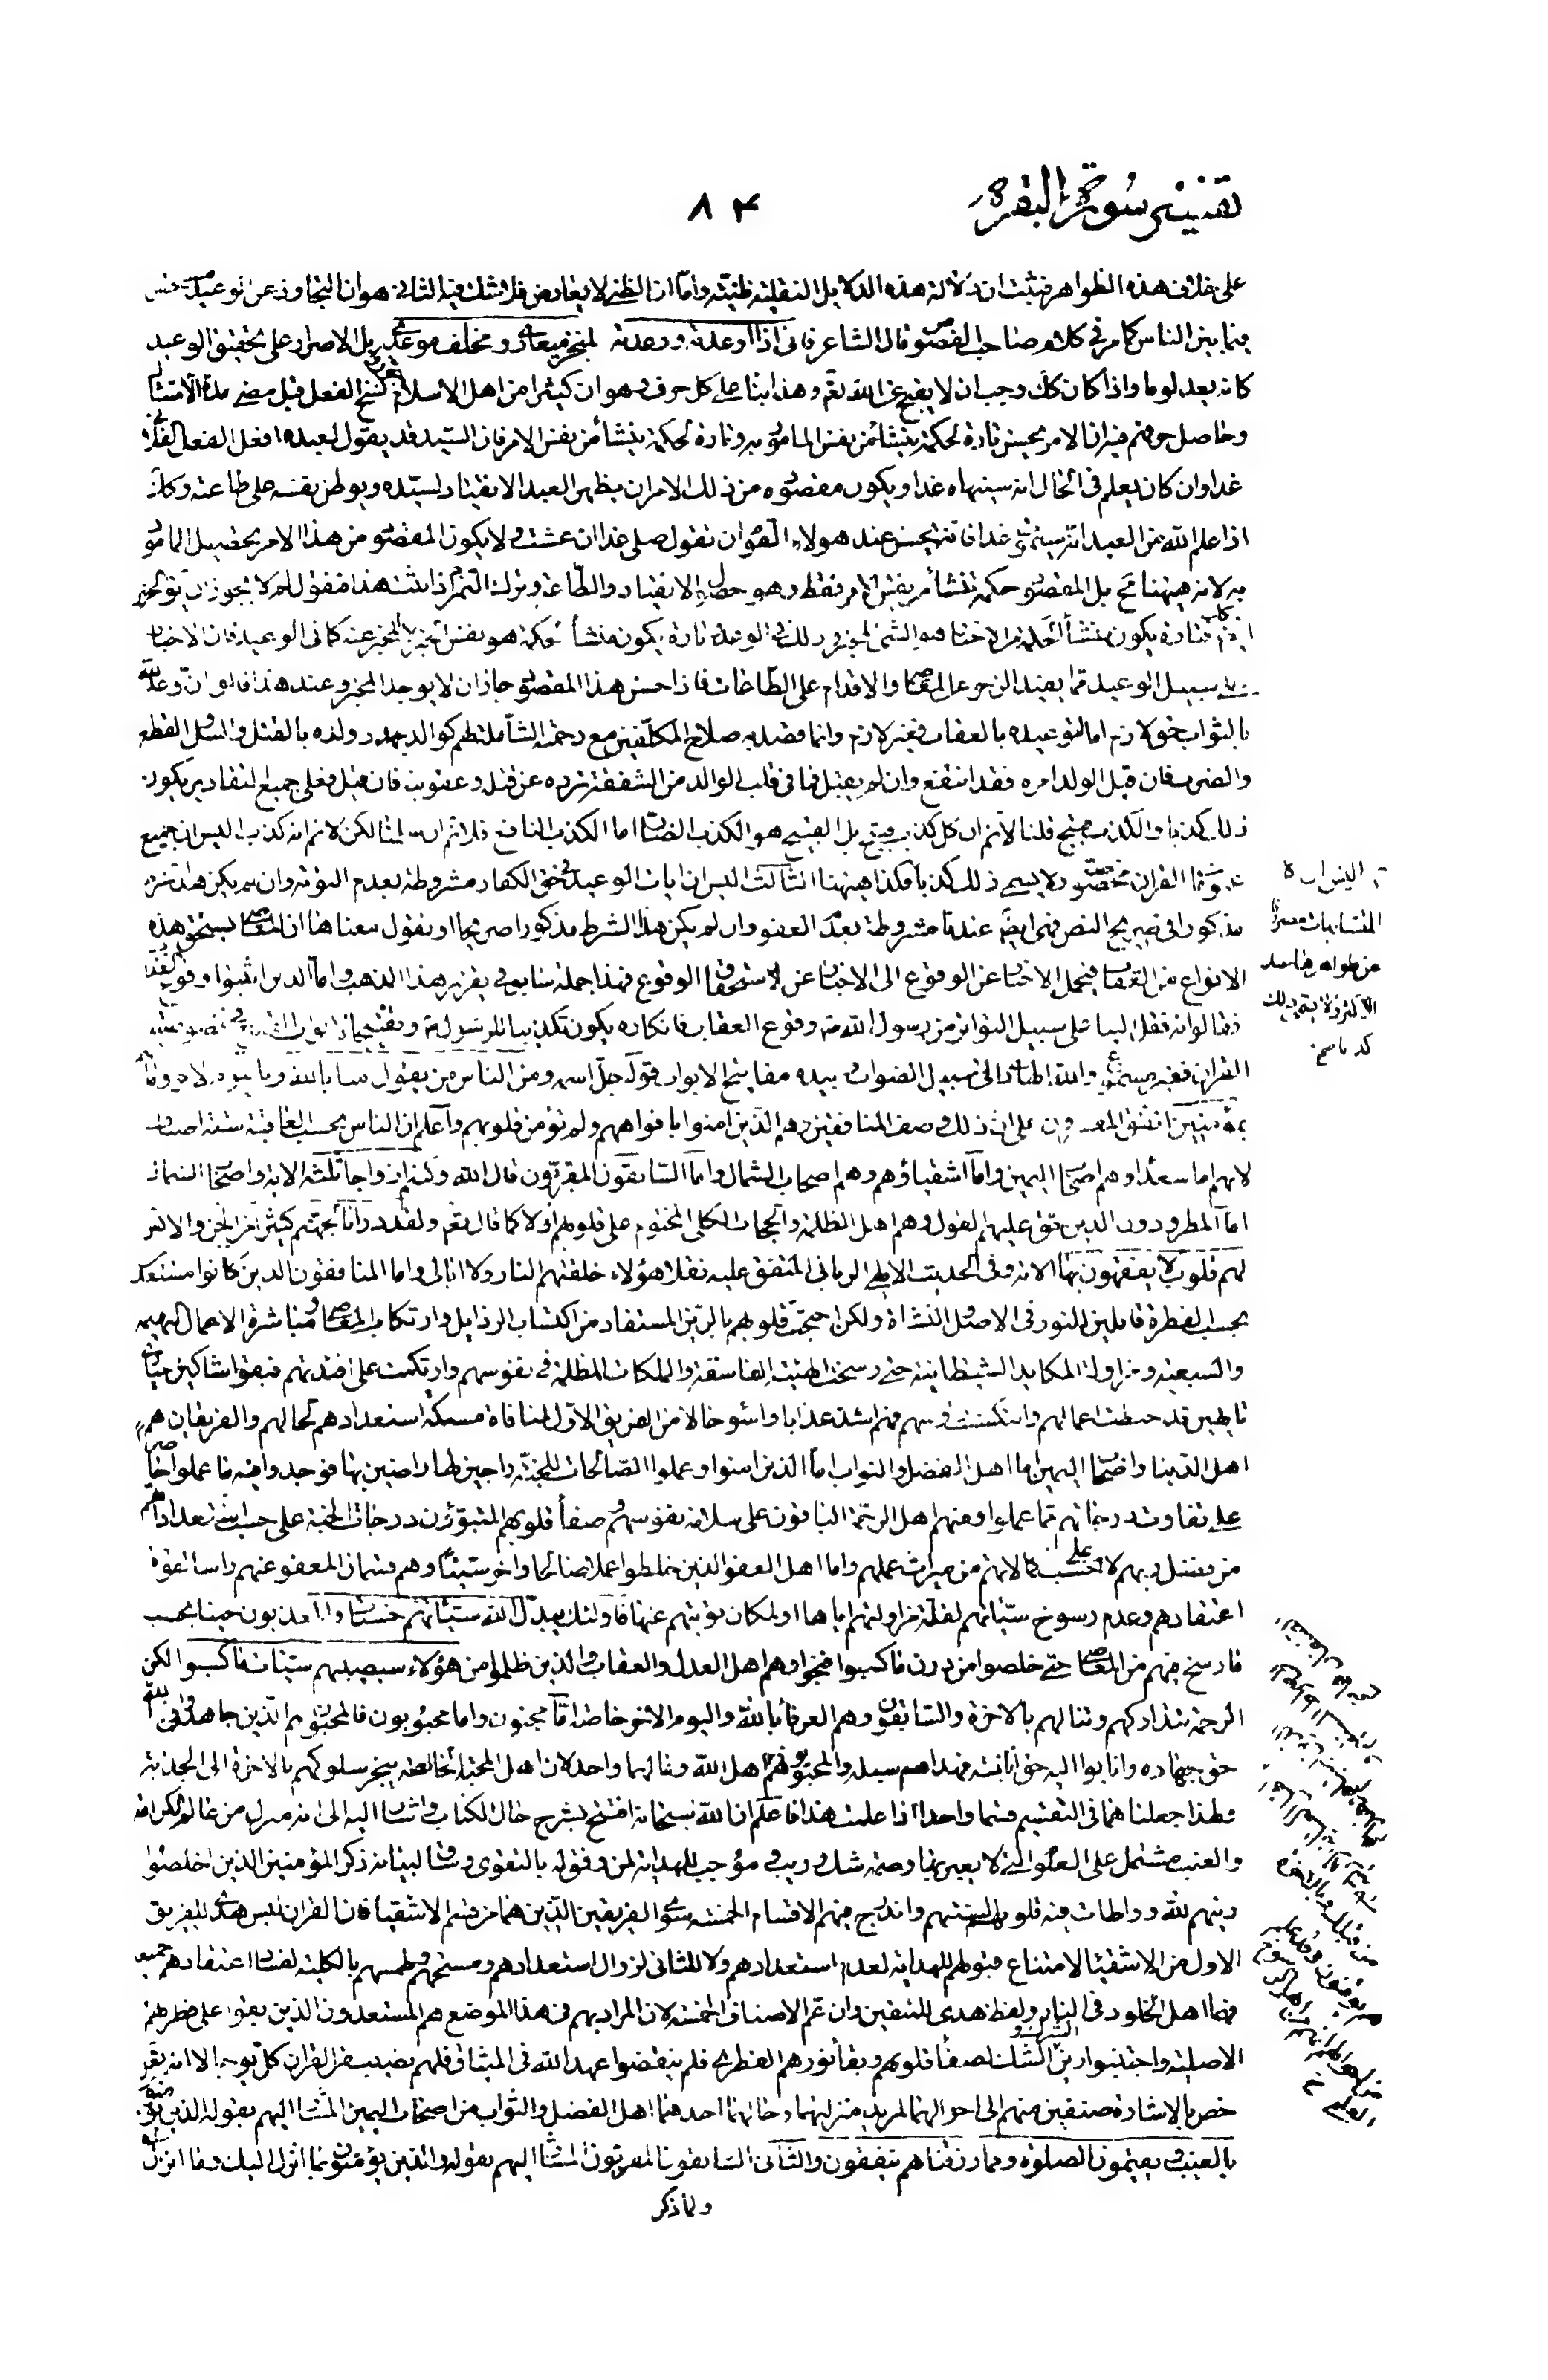 تفسير سورة البقرة
٨۴
على خلاف هذه الظواهر فثبت ان دلالة هذه الدلايل النقلية ظنية واما ان الظني لا يعارض فلا شك فيه الثاني هو ان التجاوز عن الوعيد
فيما بين الناس كما مر في كلام صاحب الفصوص قال الشاعر فاني اذا اوعدته ووعدته لمنجز ميعادي ومخلف موعدي بل الاصرار على تحقيق الوعيد
كانه يعد لوما واذا كان كك وجب ان لا يقبح عن الله تعم وهذا بناء على كل حرف وهو ان كثيرا من اهل الاسلام نسخ الفعل قبل مضى مدة الامتثال
وحاصل حرفهم فيه ان الامر يحسن تارة لحكمة ينشأ من نفس المامور به وتارة لحكمة ينشأ من نفس الامر فان السيد قد يقول لعبده افعل الفعل الفلاني
غدا وان كان يعلم في الحال انه سينهاه غدا ويكون مقصوده من ذلك الامر ان يظهر العبد الانقياد لسيده ويوطن نفسه على طاعته وكك
اذا علم الله من العبد انه سيموت غدا فانه يحسن عند هولاء القوم ان نقول صلى غدا ان عشت ولا يكون المقصود من هذا الامر تحصيل المامور
به لانه ههنا مح بل المقصود حكمة تنشأ من نفس الامر فقط وهو حصول الانقياد والطاعة وترك التمرد اذا ثبت هذا فنقول لم لا يجوز ان يق الخبر
ايضا كك فتارة يكون منشأ الحكمة من الاخبار هو الشئ المخبر وذلك في الوعد وتارة يكون منشأ الحكمة هو نفس الخبر لا المخبر عنه كما في الوعيد فان الاخبار
على سبيل الوعيد مما يفيد الزجر عن المعاصي والاقدام على الطاعات فاذا حصل هذا المقصود جاز ان لا يوجد المخبر وعند هذا قالوا ان وعد الله
بالثواب حق لازم اما توعيده بالعقاب فغير لازم وانما قصد به صلاح المكلفين مع رحمته الشاملة لهم كالوالد يهدد ولده بالقتل والسل والقطع
والضرب فان قبل الولد امره فقد انتفع وان لم يقبل فما في قلب الوالد من الشفقة ترده عن قتله وعقوبته فان قيل فعلى جميع التقادير يكون
ذلك كذبا والكذب قبيح قلنا لا نم ان كل كذب قبيح بل القبيح هو الكذب الضار اما الكذب النافع فلا نم ان سلمنا لكن لا نم انه كذب اليس ان جميع
عمومات القران مخصوصة ولا يسمى ذلك كذبا فكذا ههنا الثالث اليس ان ايات الوعيد في حق الكفار مشروطة بعدم التوبة وان لم يكن هذا الشرط
مذكورا في صريح النص فهى ايضا عندنا مشروطة بعدم العفو وان لم يكن هذا الشرط مذكورا صريحا او نقول معناها ان العاصي يستحق هذه
الانواع من العقاب فيحمل الاخبار عن الوقوع الى الاخبار عن استحقاق الوقوع فهذا جملة ما يق في تقرير هذا المذهب واما الذين اثبتوا وقوع العذاب
فقالوا انه نقل الينا على سبيل التواتر من رسول الله ص وقوع العقاب فانكاره يكون تكذيبا للرسول
القران فغير مسموع والله الهادي الى سبيل الصواب وبيده مفاتيح الابواب قوله جل اسمه ومن الناس من يقول امنا بالله وباليوم الاخر وما هم
بمؤمنين اتفق المفسرون على ان ذلك وصف المنافقين وهم الذين امنوا بافواههم ولم تؤمن قلوبهم واعلم ان الناس بحسب العاقبة ستة اصناف
لانهم اما سعداء وهم اصحاب اليمين واما اشقياء وهم اصحاب الشمال واما السابقون المقربون قال الله وكنتم ازواجا ثلثة الاية واصحاب الشمال
اما المطرودون الذين حق عليهم القول وهم اهل الظلمة والحجاب الكلي المختوم على قلوبهم اولا كما قال تعم ولقد ذرأنا لجهنم كثيرا من الجن والانس
لهم قلوب لا يفقهون بها الاية وفي الحديث الالهي الرباني المتفق عليه نقلا هؤلاء خلقتهم للنار ولا ابالي واما المنافقون الذين كانوا مستعدين
بحسب الفطرة قابلين للنور في الاصل والنشأة ولكن احتجبت قلوبهم بالرين المستفاد من اكتساب الرذايل وارتكاب المعاصي ومباشرة الاعمال البهيمية
والسبعية ومزاولة المكايد الشيطانية حتى رسخت الهيئات الفاسقة والملكات المظلمة في نفوسهم وارتكمت على افئدتهم فبقوا شاكين حيارى
تائهين قد حبطت اعمالهم وانتكست رؤسهم فهم اشد عذابا واسوء حالا من الفريق الاول لمنافاة مسكة استعدادهم لحالهم والفريقان هم
اهل الدنيا واصحاب اليمين اما اهل الفضل والثواب اما الذين امنوا وعملوا الصالحات للجنة راجين لها راضين بها فوجدوا فيه ما عملوا حاضرا
على تفاوت درجاتهم مما عملوا ومنهم اهل الرحمة الباقون على سلامة نفوسهم وصفاء قلوبهم المتبوؤن درجات الجنة على حسب استعداداتهم
من فضل ربهم لا على حسب كمالاتهم من ميراث عملهم واما اهل العفو الذين خلطوا عملا صالحا واخر سيئا وهم قسمان المعفو عنهم راسا لقوة
اعتقادهم وعدم رسوخ سيئاتهم لقلة مزاولتهم اياها او لمكان توبتهم عنها فاولئك يبدل الله سيئاتهم حسنات واما المعذبون حينا بحسب
ما رسخ فيهم من المعاصي حتى خلصوا من درن ما كسبوا فنجوا وهم اهل العدل والعقاب والذين ظلموا من هؤلاء سيصيبهم سيئات ما كسبوا لكن
الرحمة تتداركهم وتنالهم بالاخرة والسابقون وهم العرفاء بالله واليوم الاخر خاصة اما محبون واما محبوبون فالمحبون هم الذين جاهدوا في الله
حق جهاده وانابوا اليه حق انابته فهداهم سبله والمحبوبون هم اهل الله ومالهما واحد لان اهل المحبة الخالصة ينجر سلوكهم بالاخرة الى الجذبة
ولهذا جعلناهما في التقسيم قسما واحدا اذا علمت هذا فاعلم ان الله سبحانه افتتح بشرح حال الكتاب واشار اليه الى انه منزل من عالم
والغيب مشتمل على العلوم التي لا يعتريها وصمة شك وريب ومؤجب للهداية لمن وفق له بالتقوى وساق لبيانه ذكر المؤمنين الذين اخلصوا
دينهم لله وواطات فيه قلوبهم السنتهم واندرج فيهم الاقسام الخمسة سوى الفريقين الذين هما من قسم الاشقياء فان القران ليس هدى للفريق
الاول من الاشقياء لامتناع قبولهم للهداية لعدم استعدادهم ولا للثاني لزوال استعدادهم ومسخهم وطمسهم بالكلية لفساد اعتقادهم جميعا
فهما اهل الخلود في النار ولفظ هدى للمتقين وان عم الاصناف الخمسة لان المراد بهم في هذا الموضع هم المستعدون الذين بقوا على فطرتهم
الاصلية واجتنبوا رين الشك والشرك لصفاء قلوبهم وبقاء نورهم الفطري فلم ينقضوا عهد الله في الميثاق فلهم نصيب من القران كل يوم الا انه تعم
خص بالاشارة صنفين منهم الى احوالهما لمزيد منزلتهما وحالهما احدهما اهل الفضل والثواب من اصحاب اليمين المشار اليهم بقوله الذين يؤمنون
بالغيب ويقيمون الصلوة ومما رزقناهم ينفقون والثاني السابقون المقربون المشار اليهم بقوله والذين يؤمنون بما انزل اليك وما انزل
ولما ذكر